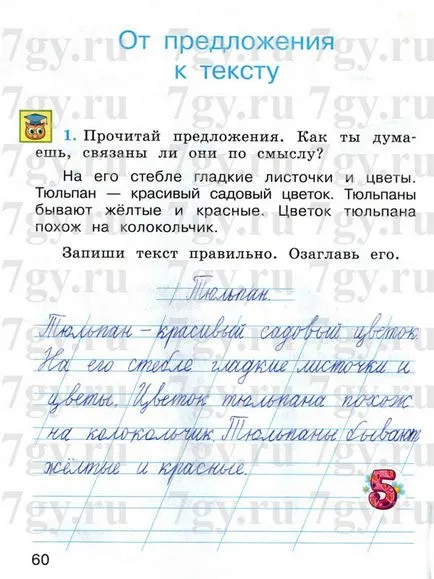 7gy.ru 7gy.ru 7gy.ru
От предложения
к тексту
1. Прочитай предложения. Как ты дума-
ешь, связаны ли они по смыслу?
На его стебле гладкие листочки и цветы.
Тюльпан — красивый садовый цветок. Тюльпаны
бывают жёлтые и красные. Цветок тюльпана
похож на колокольчик.
Запиши текст правильно. Озаглавь его.
Тюльпан.
Тюльпан – красивый садовый цветок.
На его стебле гладкие листочки и
цветы. Цветок тюльпана похож
на колокольчик. Тюльпаны бывают
жёлтые и красные.
5
60